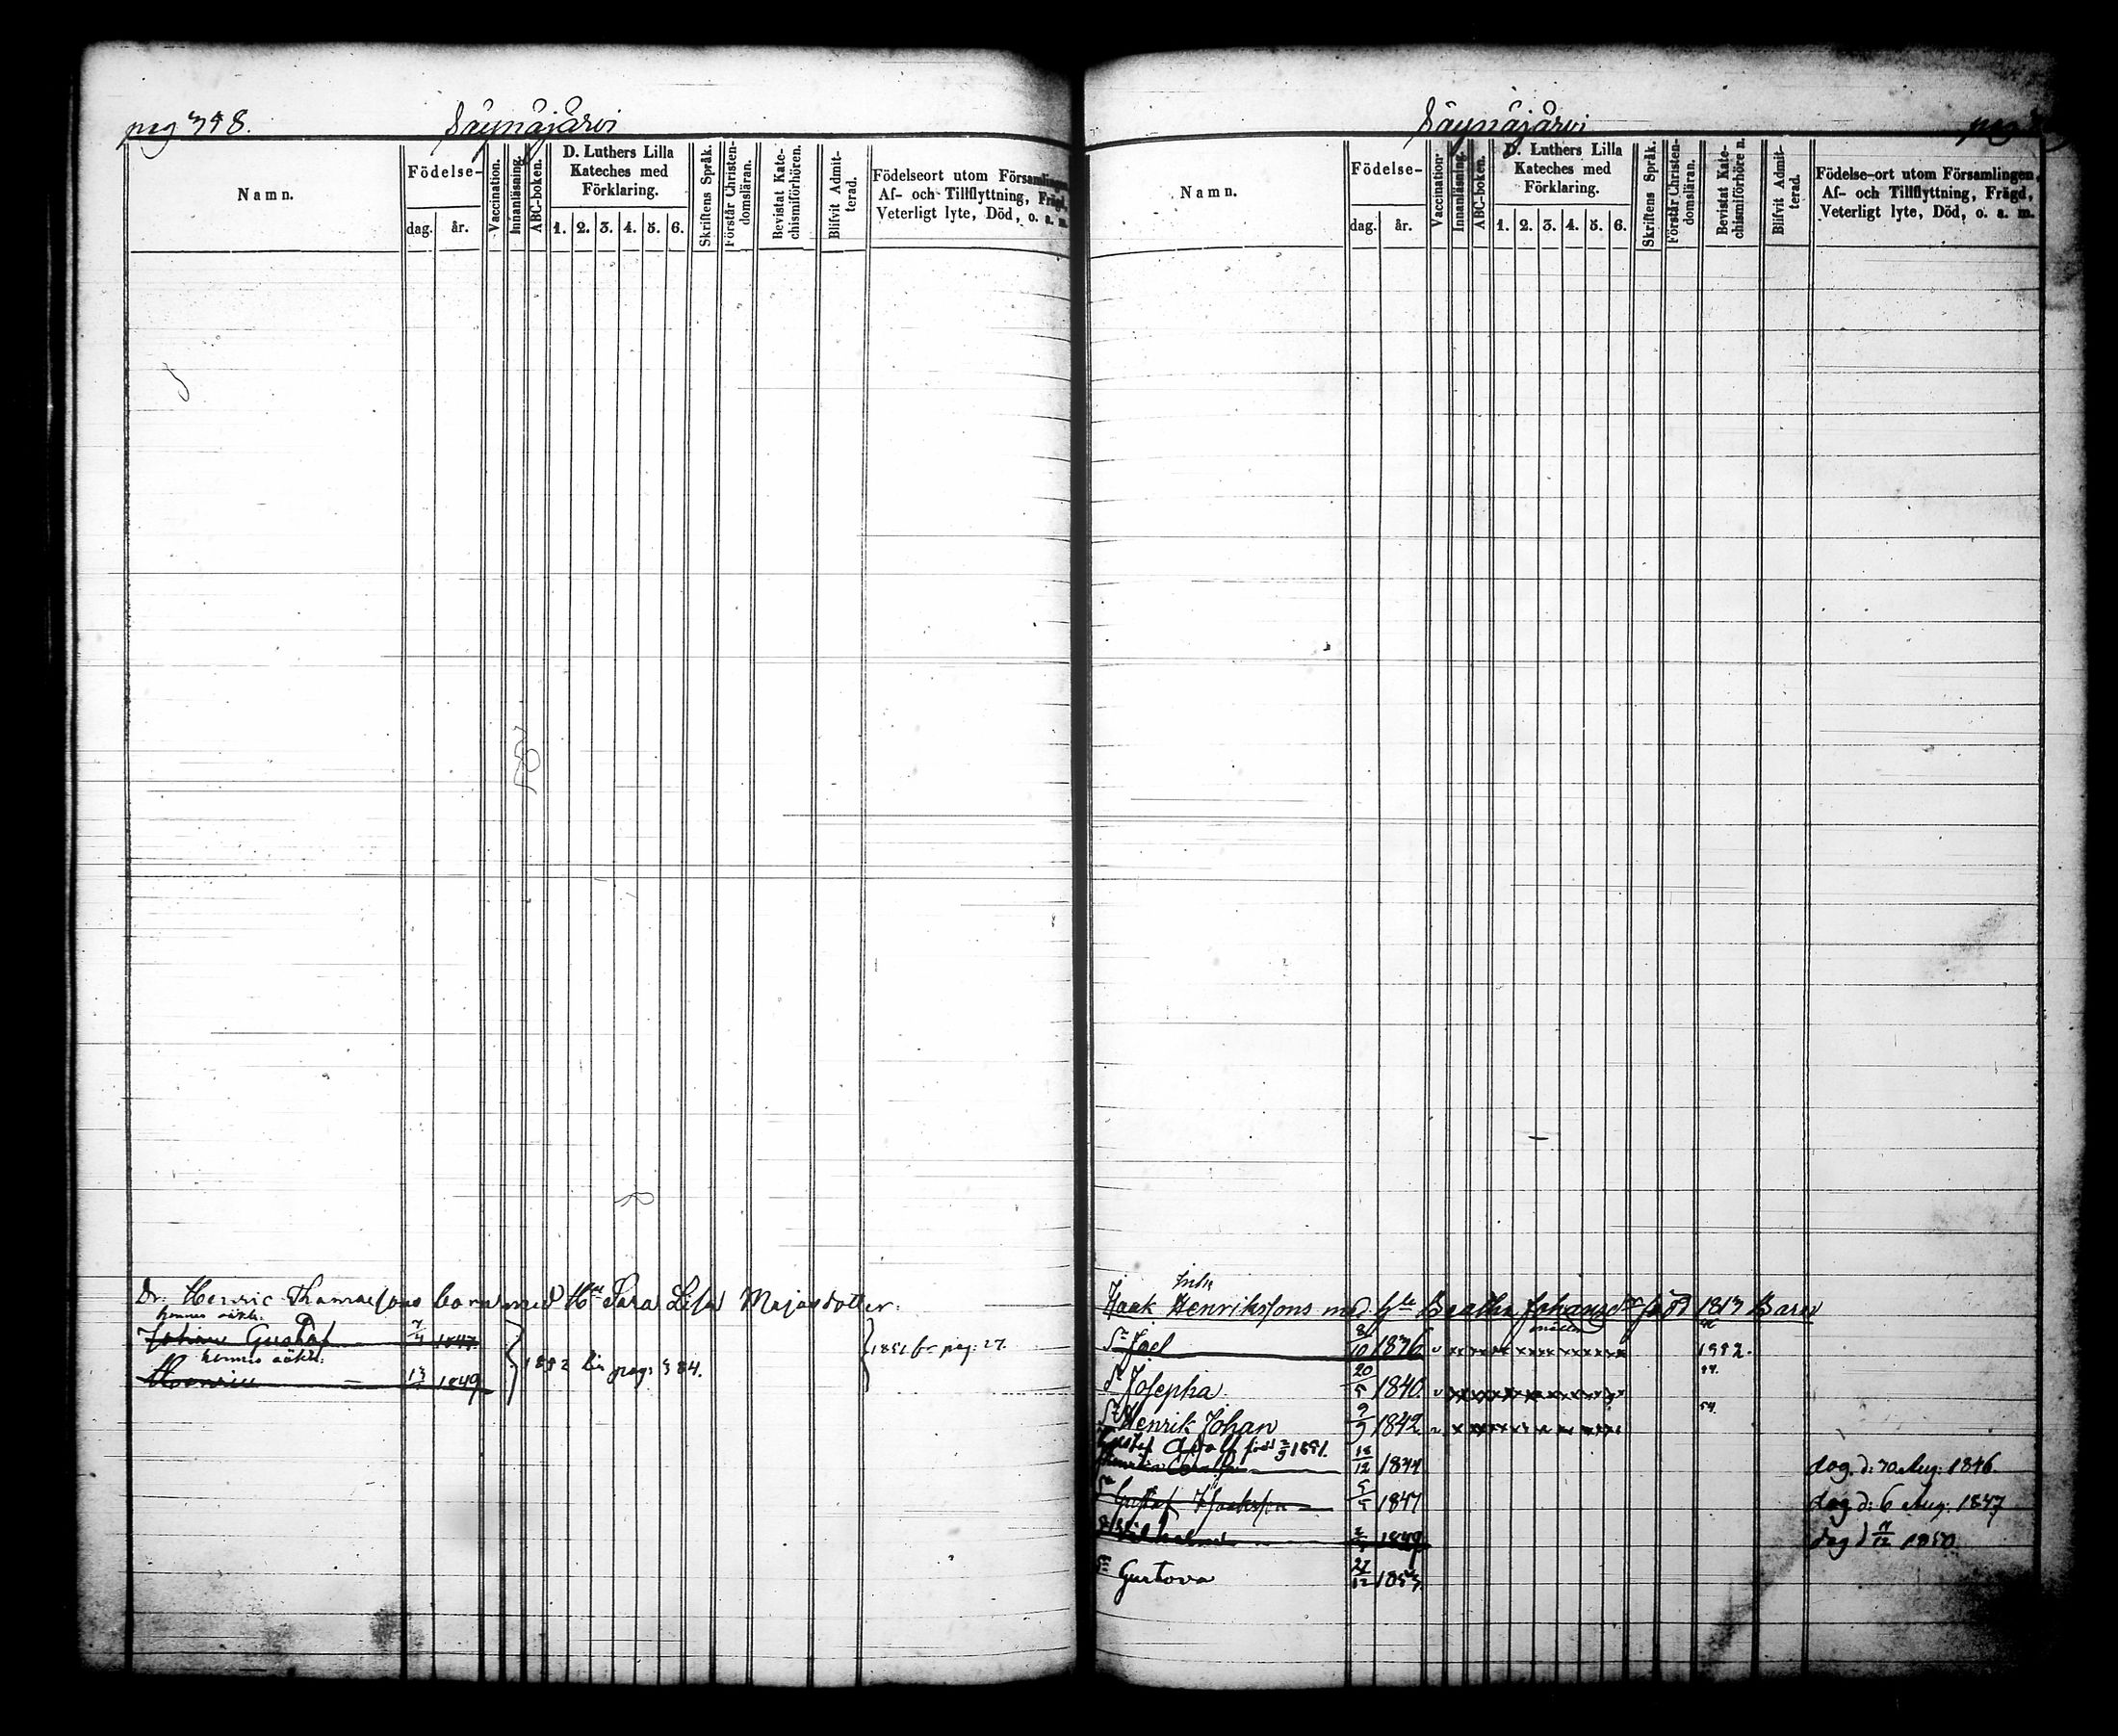 pag 398.
Säynäjärvi
Namn.
Födelse-
dag. år.
Vaccination.
Innanläsning.
ABC-boken.
D. Luthers Lilla
Kateches med
Förklaring.
1. 2. 3. 4. 5. 6.
Skriftens Språk.
Förstår Christen-
domsläran.
Bevistat Kate-
chismiförhören.
Blifvit Admit-
terad.
Födelseort utom Församlingen,
Af- och Tillflyttning, Frägd,
Veterligt lyte, Död, o. a. m.
Dr. Henric Thomassons barn med Hu Sara Lisa Majasdotter.
hennes oäkta:
Johan Gustaf 1847.
hennes oäkta:
Henric 1849
1852 pag: 384.
1851 fr. pag: 27.
Säynäjärvi
pag
Namn.
Födelse-
dag. år.
Vaccination.
Innanläsning.
ABC-boken.
D. Luthers Lilla
Kateches med
Förklaring.
1. 2. 3. 4. 5. 6.
Skriftens Språk.
Förstår Christen-
domsläran.
Bevistat Kate-
chismiförhören.
Blifvit Admit-
terad.
Födelse-ort utom Församlingen,
Af- och Tillflyttning, Frägd,
Veterligt lyte, Död, o. a. m.
Isak Henrikssons med Beatha Johansdr född 1813 Barn
Joel 8/10 1836 1852.
Josepha 20/5 1840.
Henrik Johan 9/9 1842 54.
Gustaf Adolf född 1851.
18/12 1844 dog. d: 30 Aug: 1846.
Gustaf Isaksson 5/5 1847 dog d: 6 Aug: 1847
Wilhelmi 1849 dog d 1850
Gustava 22/12 1853